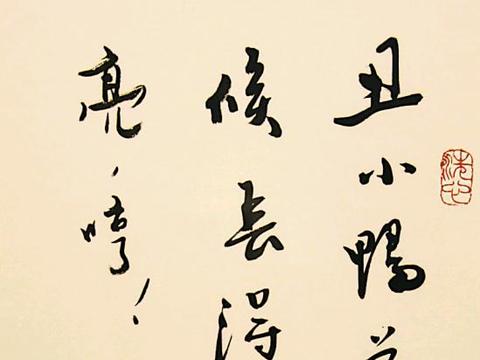 丑小鴨
候長得
亮，哼！